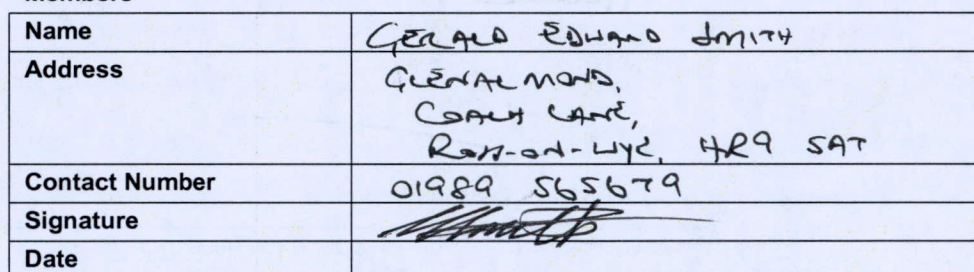 Members
Name GERALD EDWARD SMITH
Address GLENALMOND,
COACH LANE,
ROSS-ON-WYE, HR9 5AT
Contact Number 01989 565679
Signature
Date